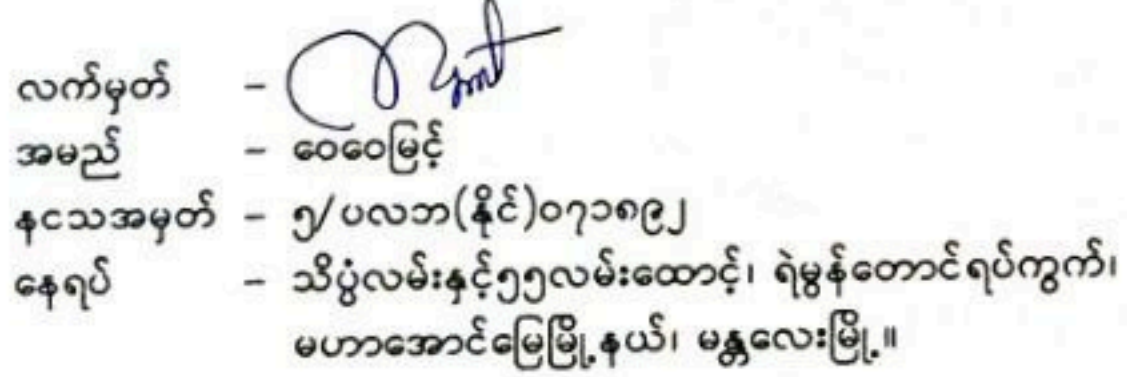 လက်မှတ် -
အမည် - ဝေဝေမြင့်
နငသအမှတ် - ၅/ပလဘ(နိုင်)၀၇၁၈၉၂
နေရပ် - သိပ္ပံလမ်းနှင့်၅၅လမ်းထောင့်၊ ရဲမွန်တောင်ရပ်ကွက်၊
မဟာအောင်မြေမြို့နယ်၊ မန္တလေးမြို့။